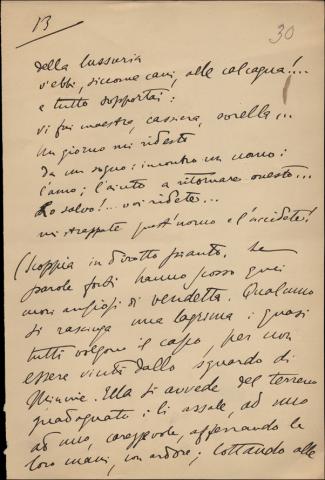 13
30
della lussuria
v'ebbi, siccome cani, alle calcagna!...
e tutto sopportai:
vi fui maestra, cassiera, sorella...
Un giorno mi ridesto
da un sogno: incontro un uomo:
l'amo; l'aiuto a ritornare onesto...
Lo salvo!... voi ridete...
mi strappate quest'uomo e l'uccidete!
(Scoppia in dirotto pianto. Le
parole forti hanno scosso quei
ansiosi di vendetta. Qualcuno
si rasciuga una lagrima: quasi
tutti volgono il capo, per non
essere vinti dallo sguardo di
Minnie. Ella si avvede del terreno
guadagnato: li assale, ad uno
ad uno, carezzevole, afferrando le
loro mani, con ardore; lottando alle